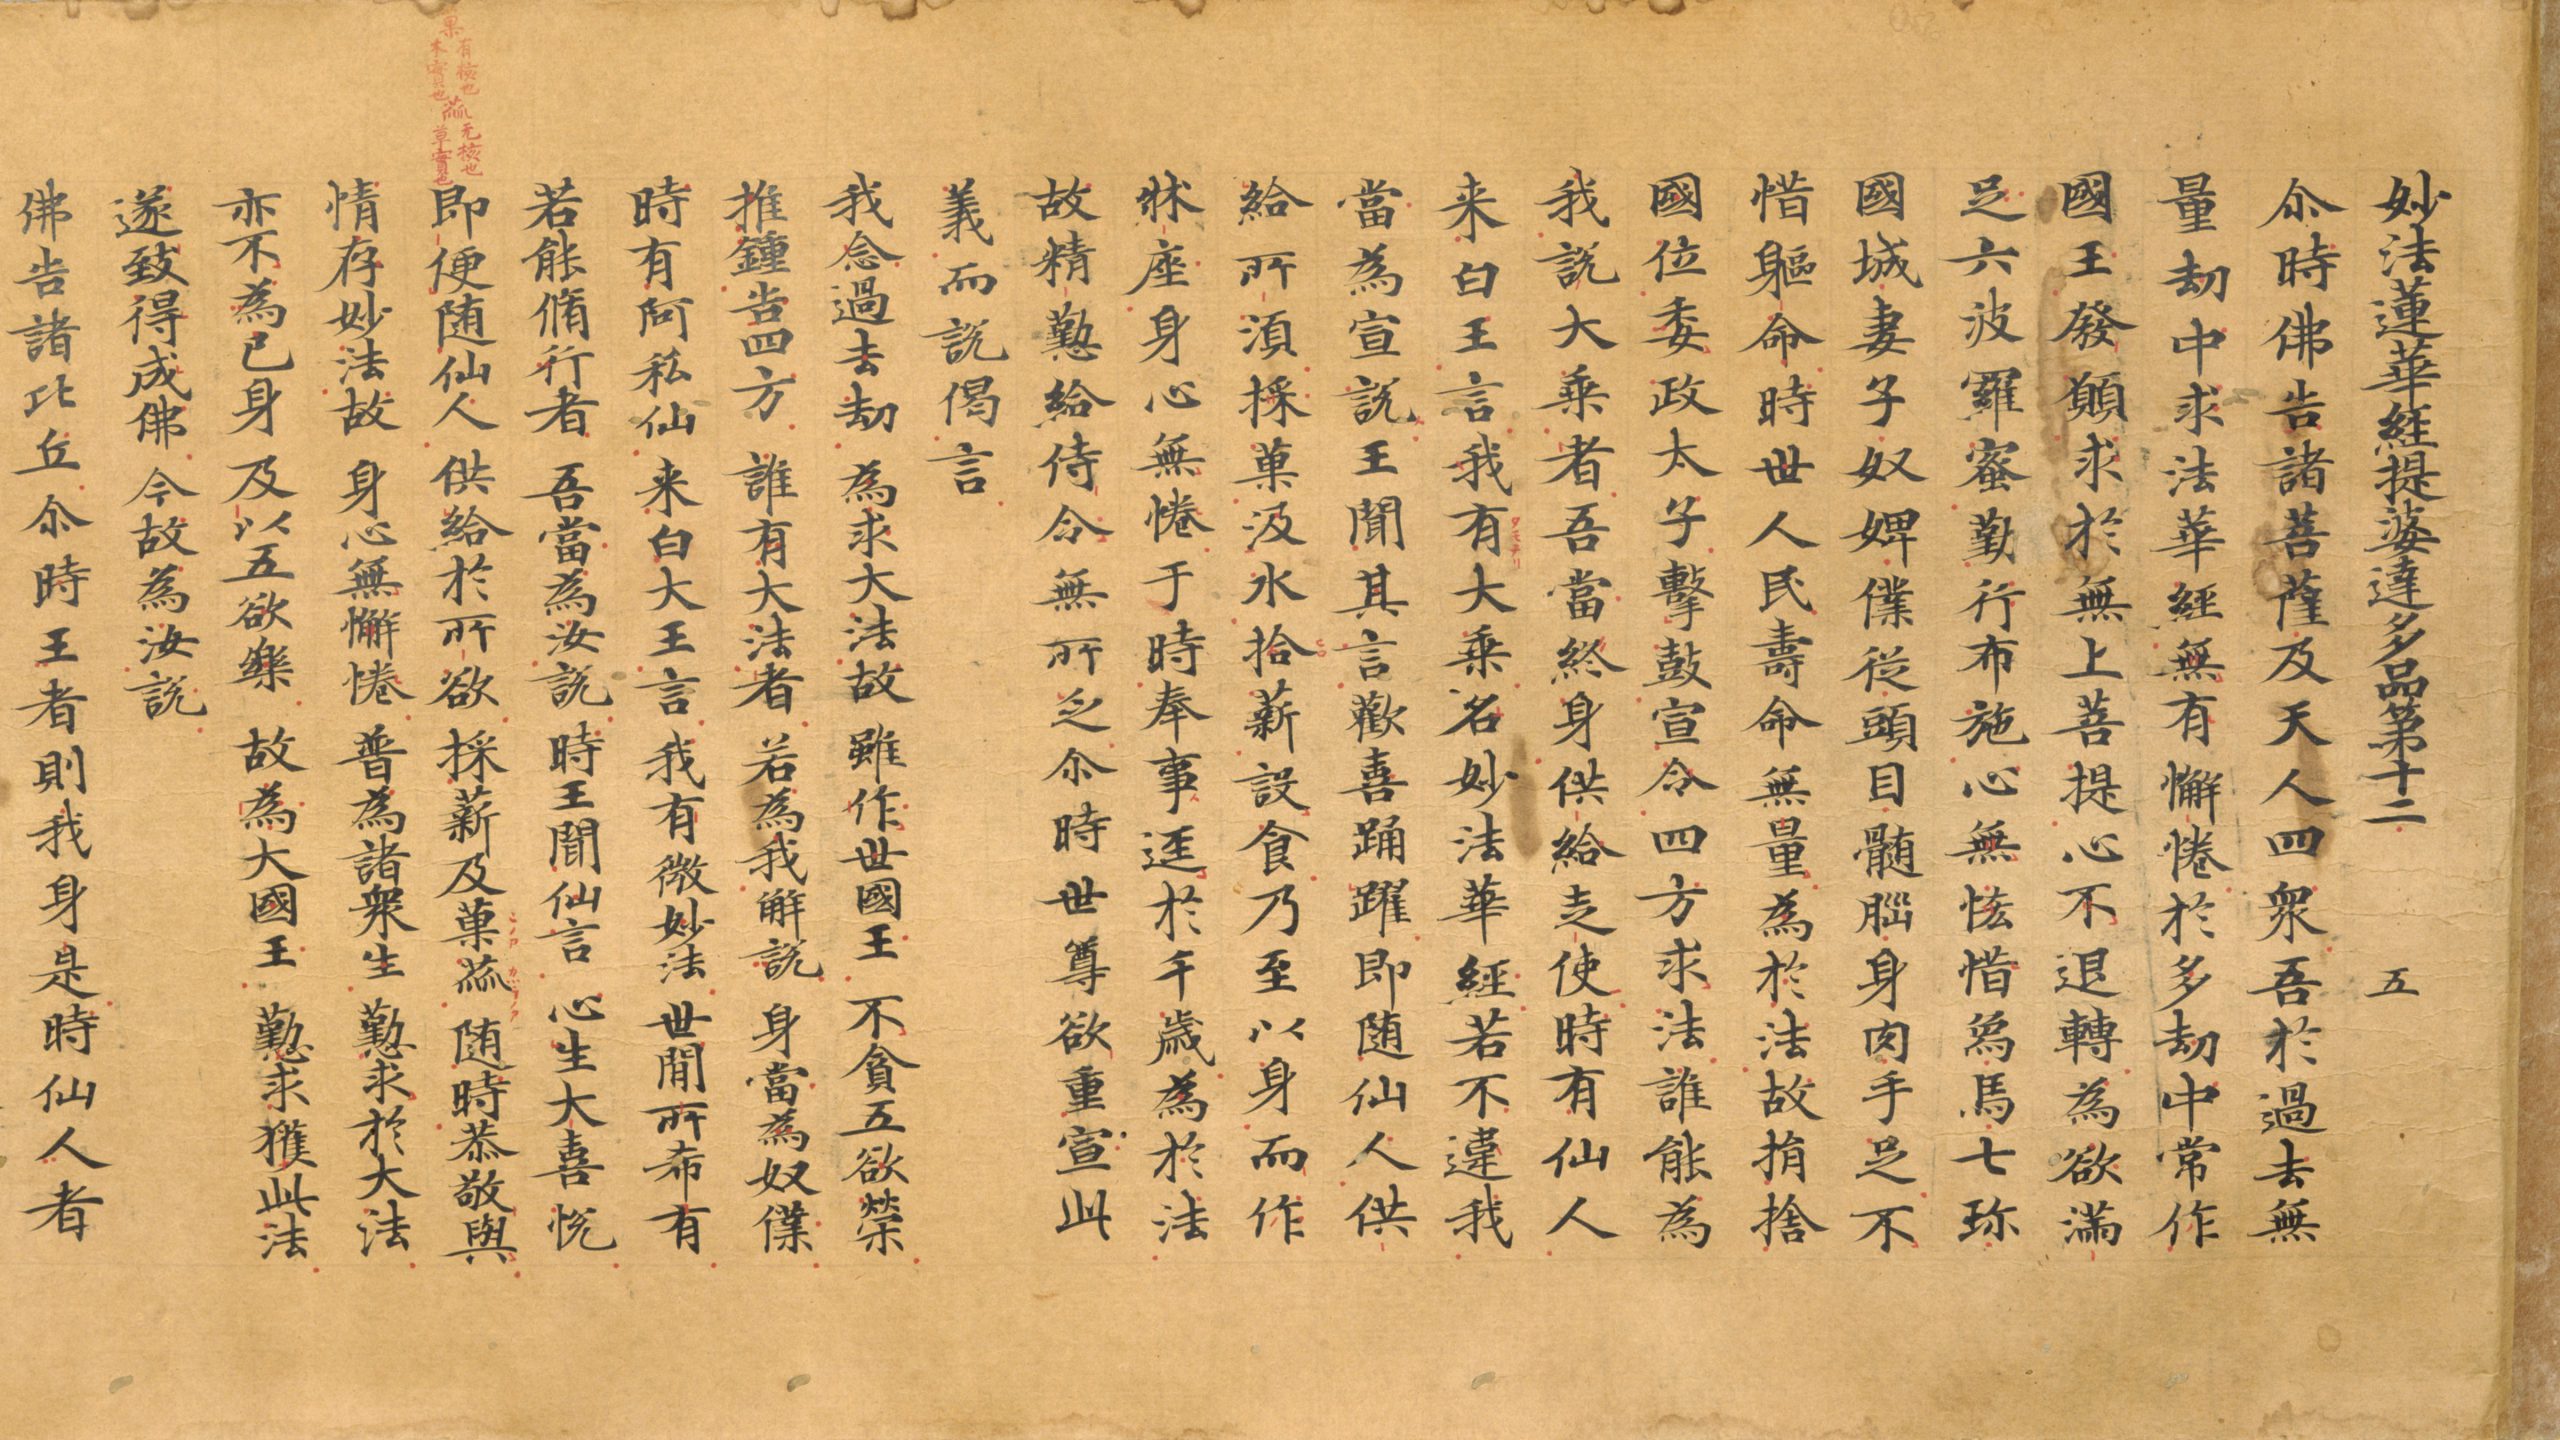 妙法蓮華經提婆達多品第十二 五
尒時佛告諸菩薩及天人四衆吾於過去無
量劫中求法華經無有懈惓於多劫中常作
國王發願求於無上菩提心不退轉為欲滿
足六波羅蜜勤行布施心無悋惜象馬七珎
國城妻子奴婢僕従頭目髄腦身肉手足不
惜軀命時世人民壽命無量為於法故捐捨
國位委政太子擊鼓宣令四方求法誰能為
我說大乗者吾當終身供給走使時有仙人
来白王言我有大乗名妙法華經若不違我
當為宣說王聞其言歡喜踊躍即随仙人供
給所湏採菓汲水拾薪設食乃至以身而作
牀座身心無惓于時奉事逕於千歲為於法
故精懃給侍令無所乏尒時世尊欲重宣此
義而說偈言
我念過去劫 為求大法故 雖作世國王 不貪五欲榮
推鍾告四方 誰有大法者 若為我解說 身當為奴僕
時有阿私仙 来白大王言 我有微妙法 世間所希有
若能脩行者 吾當為汝說 時王聞仙言 心生大喜悅
果 有核也 木實也 菰 无核也 草實也
即便随仙人 供給於所欲 採薪及菓菰 随時恭敬與
情存妙法故 身心無懈惓 普為諸衆生 懃求於大法
亦不為己身 及以五欲樂 故為大國王 懃求獲此法
遂致得成佛 今故為汝說
佛告諸比丘尒時王者則我身是時仙人者